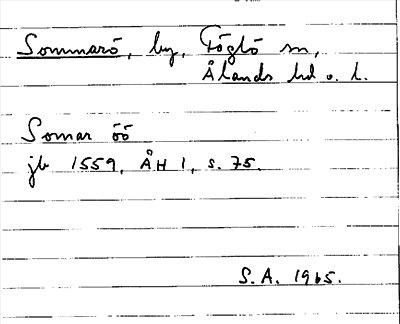 Sommarö, by, Föglö sn,
Ålands hd o. l.
Somar öö
jb 1559, ÅH 1, s. 75.
S.A. 1965.